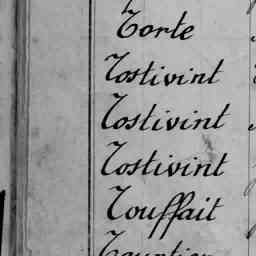 Torte
Tostivint
Tostivint
Tostivint
Touffait